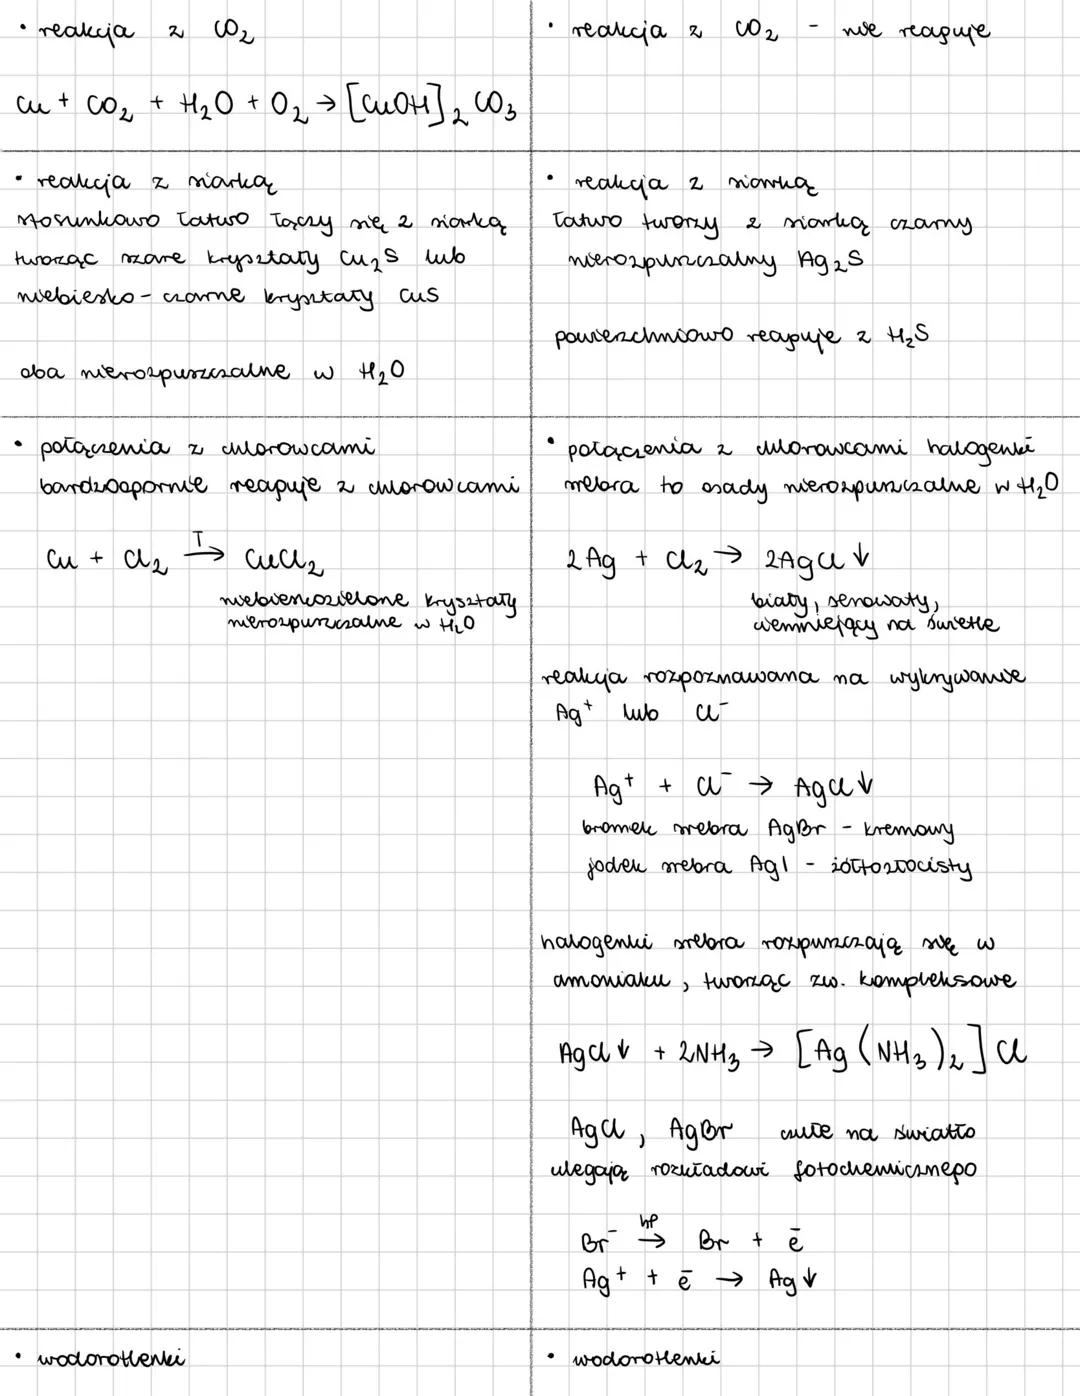 • reakcja z CO₂
Cu + CO₂ + H₂O + O₂ → [CuOH]₂CO₃
• reakcja z siarką
stosunkowo łatwo łączy się z siarką
tworząc szare kryształy Cu₂S lub
niebiesko-czarne kryształy CuS
oba nierozpuszczalne w H₂O
• połączenia z chlorowcami
bardzo opornie reaguje z chlorowcami
Cu + Cl₂ →(T) CuCl₂
niebieskozielone kryształy
nierozpuszczalne w H₂O
• wodorotlenki
• reakcja z CO₂ - nie reaguje
• reakcja z siarką
łatwo tworzy z siarką czarny
nierozpuszczalny Ag₂S
powierzchniowo reaguje z H₂S
• połączenia z chlorowcami halogenki
srebra to osady nierozpuszczalne w H₂O
2Ag + Cl₂ → 2AgCl ↓
biały, serowaty,
ciemniejący na świetle
reakcja rozpoznawana na wykrywanie
Ag⁺ lub Cl⁻
Ag⁺ + Cl⁻ → AgCl ↓
bromek srebra AgBr - kremowy
jodek srebra AgI - żółtozłocisty
halogenki srebra rozpuszczają się w
amoniaku, tworząc zw. kompleksowe
AgCl ↓ + 2NH₃ → [Ag(NH₃)₂]Cl
AgCl, AgBr czułe na światło
ulegają rozkładowi fotochemicznego
Br⁻ →(hν) Br + ē
Ag⁺ + ē → Ag ↓
• wodorotlenki